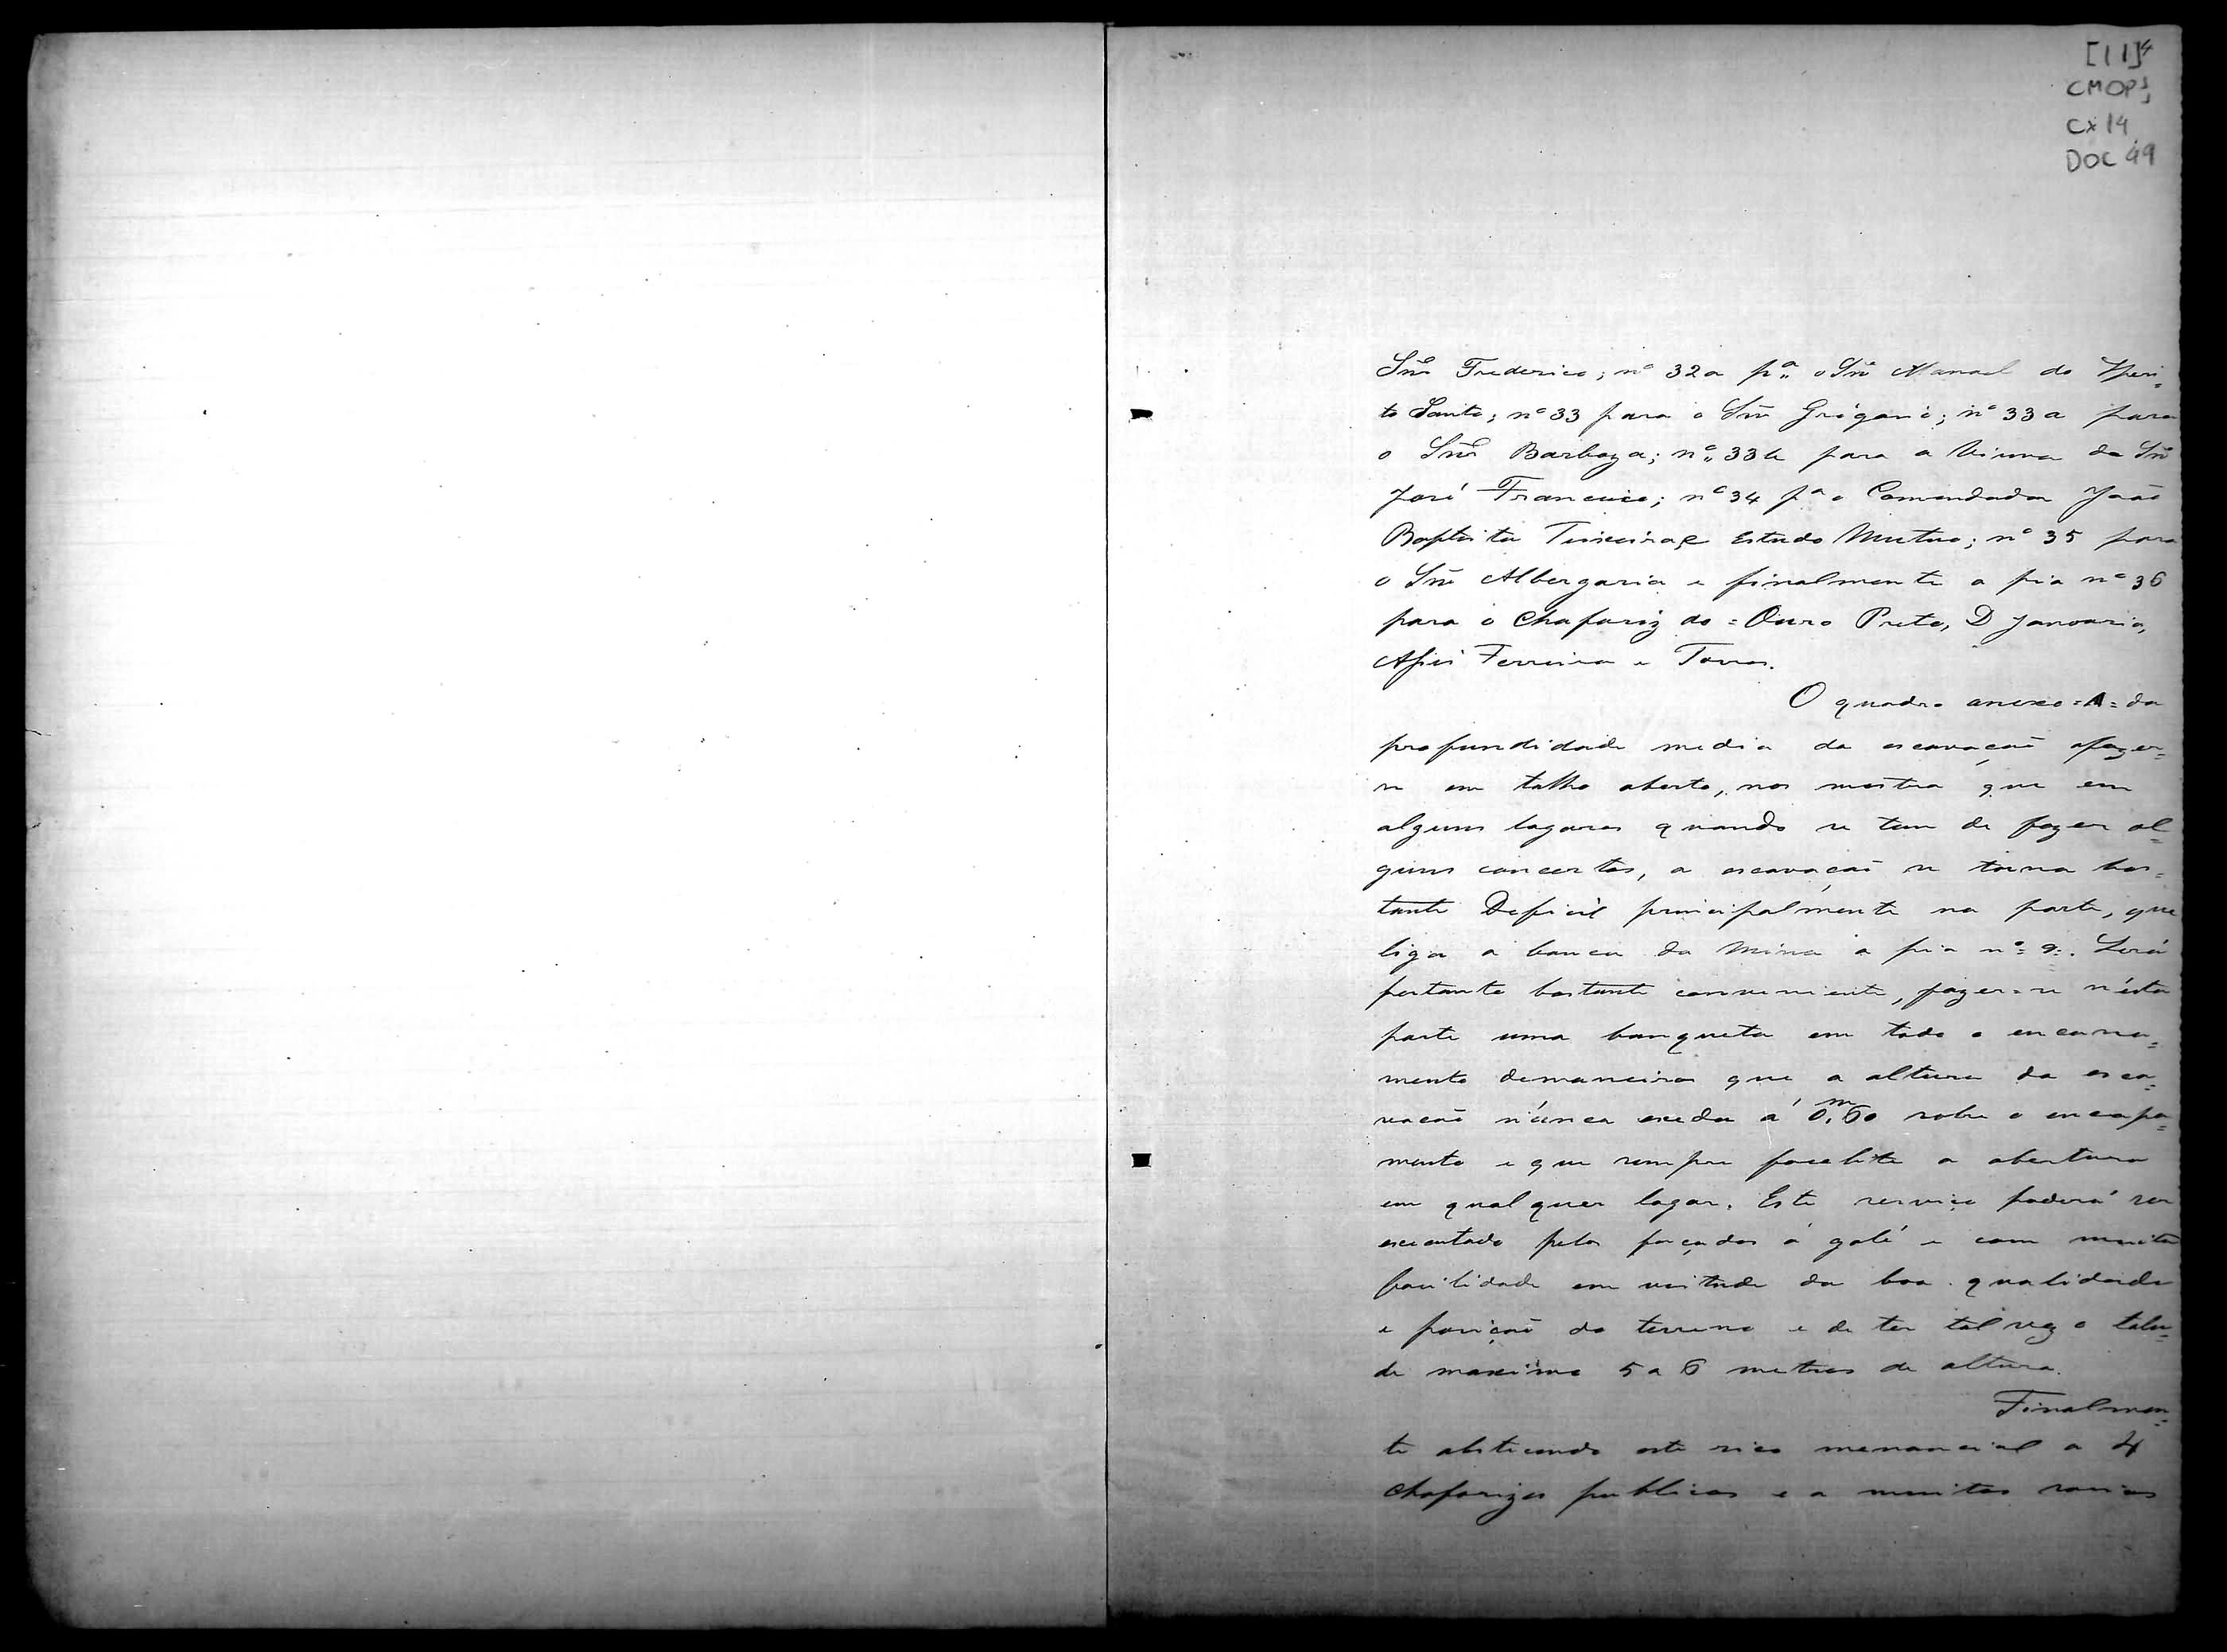 [11]4
CMOP,
CX 14
DOC 49
Snr Frederico; nº 32a pª o Snr Manoel do Speri=
to Santo; nº 33 para o Snr Grigorio; nº 33a para
o Snr Barboza; nº 33b para a Viuva do Snr
José Francisco; nº 34 pª o Comendador João
Baptista Teixeira, e Estudo Mutuo; nº 35 para
o Snr Albergaria e finalmente a pia nº 36
para o Chafariz do = Ouro Preto, D Januaria,
Ferreira e Torres.
O quadro anexo = A = da
profundidade media da escavacaõ afazer=
se em talho aberto, nos mostra que em
alguns lugares quando se tem de fazer al=
guns concertos, a escavaçaõ se torna bas=
tante Deficil principalmente na parte, que
liga a banca da Mina a pia nº 9=. Será
portanto bastante conveniente, fazer=se n'ésta
parte uma banqueta em todo o encana=
mento demaneira que a altura da esca=
vacaõ núnca exeda á 0,m60 sobre o encapa=
mento e que sempre facelite a abertura
em qualquer lugar. Este serviço poderá ser
executado pelos forçados á galé e com muita
facilidade em vertude da boa qualidade
e posiçaõ do terreno e de ter talvez o talu=
de maximo 5 a 6 metros de altura.
Finalmen=
te abstecendo este rico manancial a 4
Chafarizes publicos e a muitos